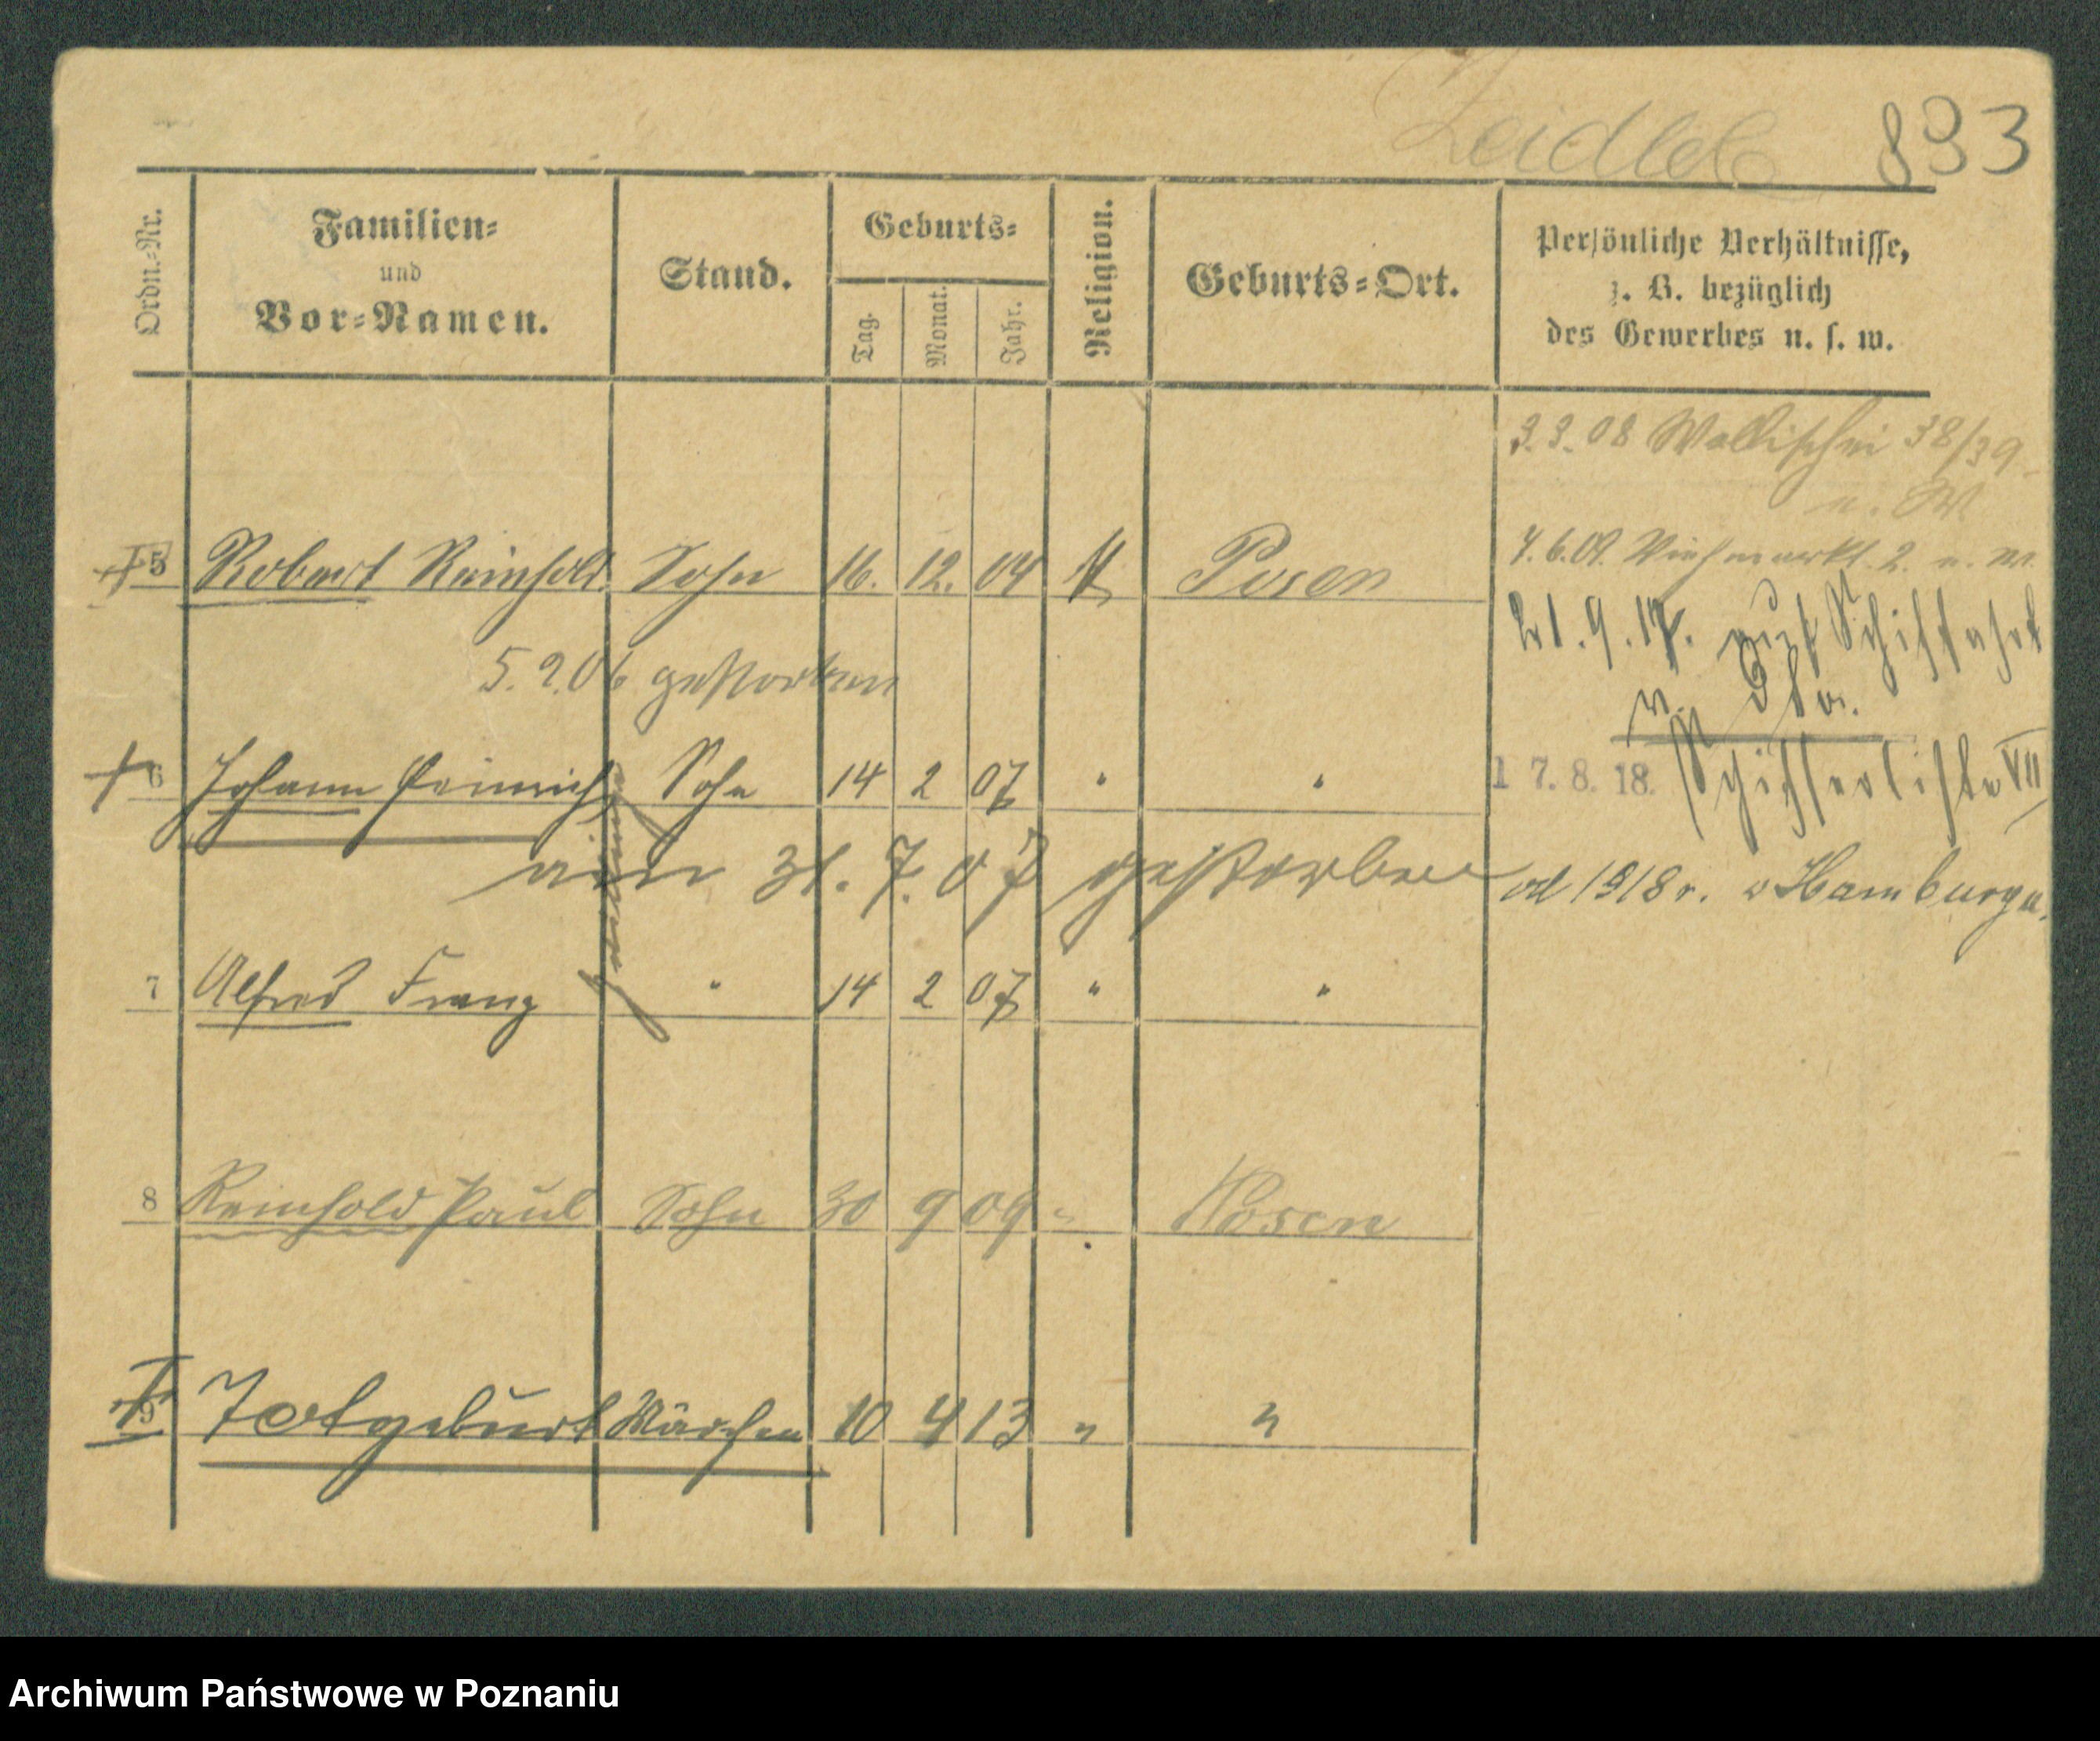 893
Ordn.-Nr.
Familien-
und
Vor-Namen.
Stand.
Geburts-
Tag.
Monat.
Jahr.
Religion.
Geburts-Ort.
Persönliche Verhältnisse,
z. B. bezüglich
des Gewerbes u. s. w.
3.3.08 Wallischei 38/39
u. W
5 Robert Reinhold Sohn 16. 12. 04 Posen
4.6.09. Viehmarkt 2. u. W.
21.9.17. auf Schiffahrt
5.9.06 gestorben
6 Johann Heinrich Sohn 14 2 07 " "
17.8.18. Schifferliste VII
am 31.7.07 gestorben
od 1918 r. w Hamburgu.
7 Alfred Franz " 14 2 07 " "
8 Reinhold Paul Sohn 30 9 09 " Posen
9 Totgeburt Mädchen 10 4 13 " "
Archiwum Państwowe w Poznaniu